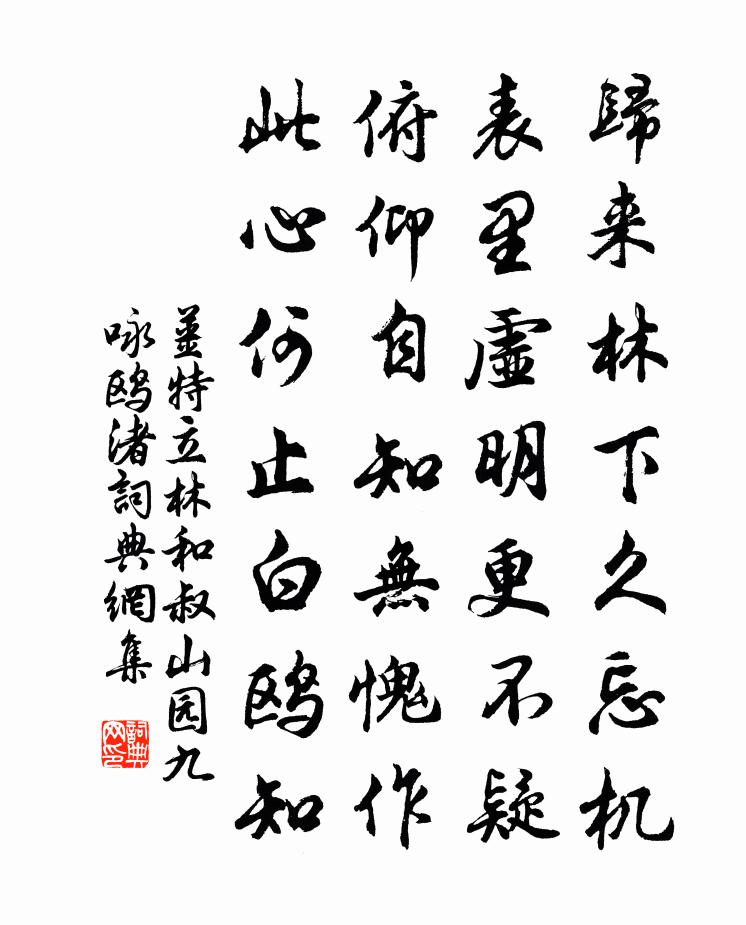 歸来林下久忘机
表里虛明更不疑
俯仰自知無愧作
此心何止白鸥知
姜特立林和叔山园九
咏鸥渚詞典網集
詞典
网印